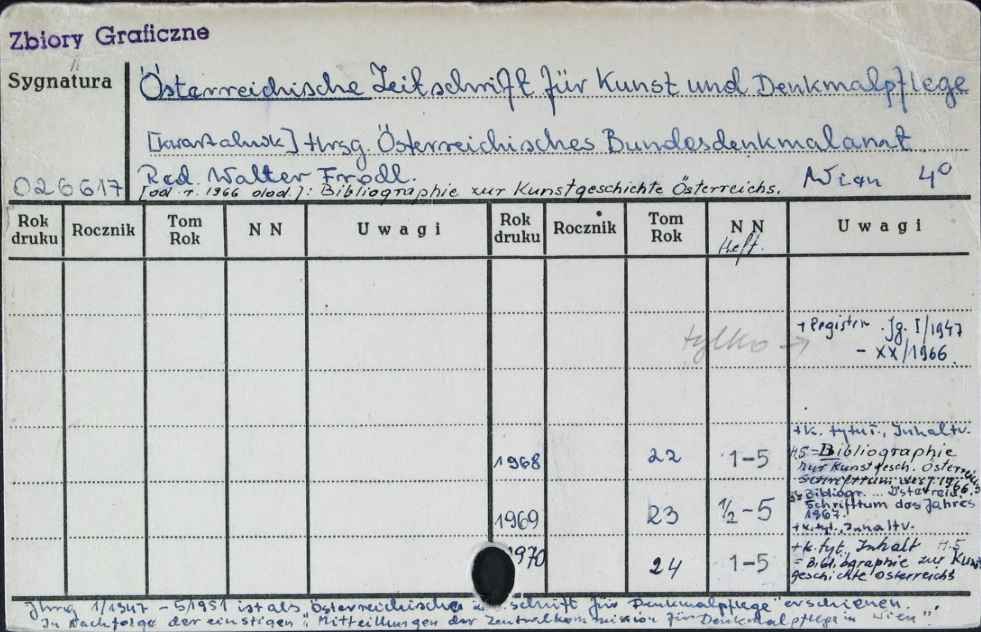 Zbiory Graficzne
Sygnatura
Österreichische Zeitschrift für Kunst und Denkmalpflege
[kwartalnik] Hrsg. Österreichisches Bundesdenkmalamt
Red. Walter Frodl. Wien 4°
026617 [od r. 1966 dod.]: Bibliographie zur Kunstgeschichte Österreichs.
Rok druku Rocznik Tom Rok N N Uwagi Rok druku Rocznik Tom Rok N N Heft. Uwagi
tylko → + Register Jg. I/1947
- XX/1966.
+k. tytuł., Inhaltv.
1968 22 1-5 H.5 = Bibliographie
zur Kunstgesch. Österreichs
Schrifttum des J. 1966
Bibliogr. ... Österreichs
Schrifttum des Jahres
1969 23 1/2-5 1967.
+k.tyt. Inhaltv.
1970 24 1-5 +k.tyt., Inhalt H.5
= Bibliographie zur Kunst
geschichte Österreichs
Jhrg 1/1947 - 5/1951 ist als "Österreichische schrift für Denkmalpflege" erschienen.
In Nachfolge der einstigen "Mitteilungen der Zentralkommission für Denkmalpflege in Wien".